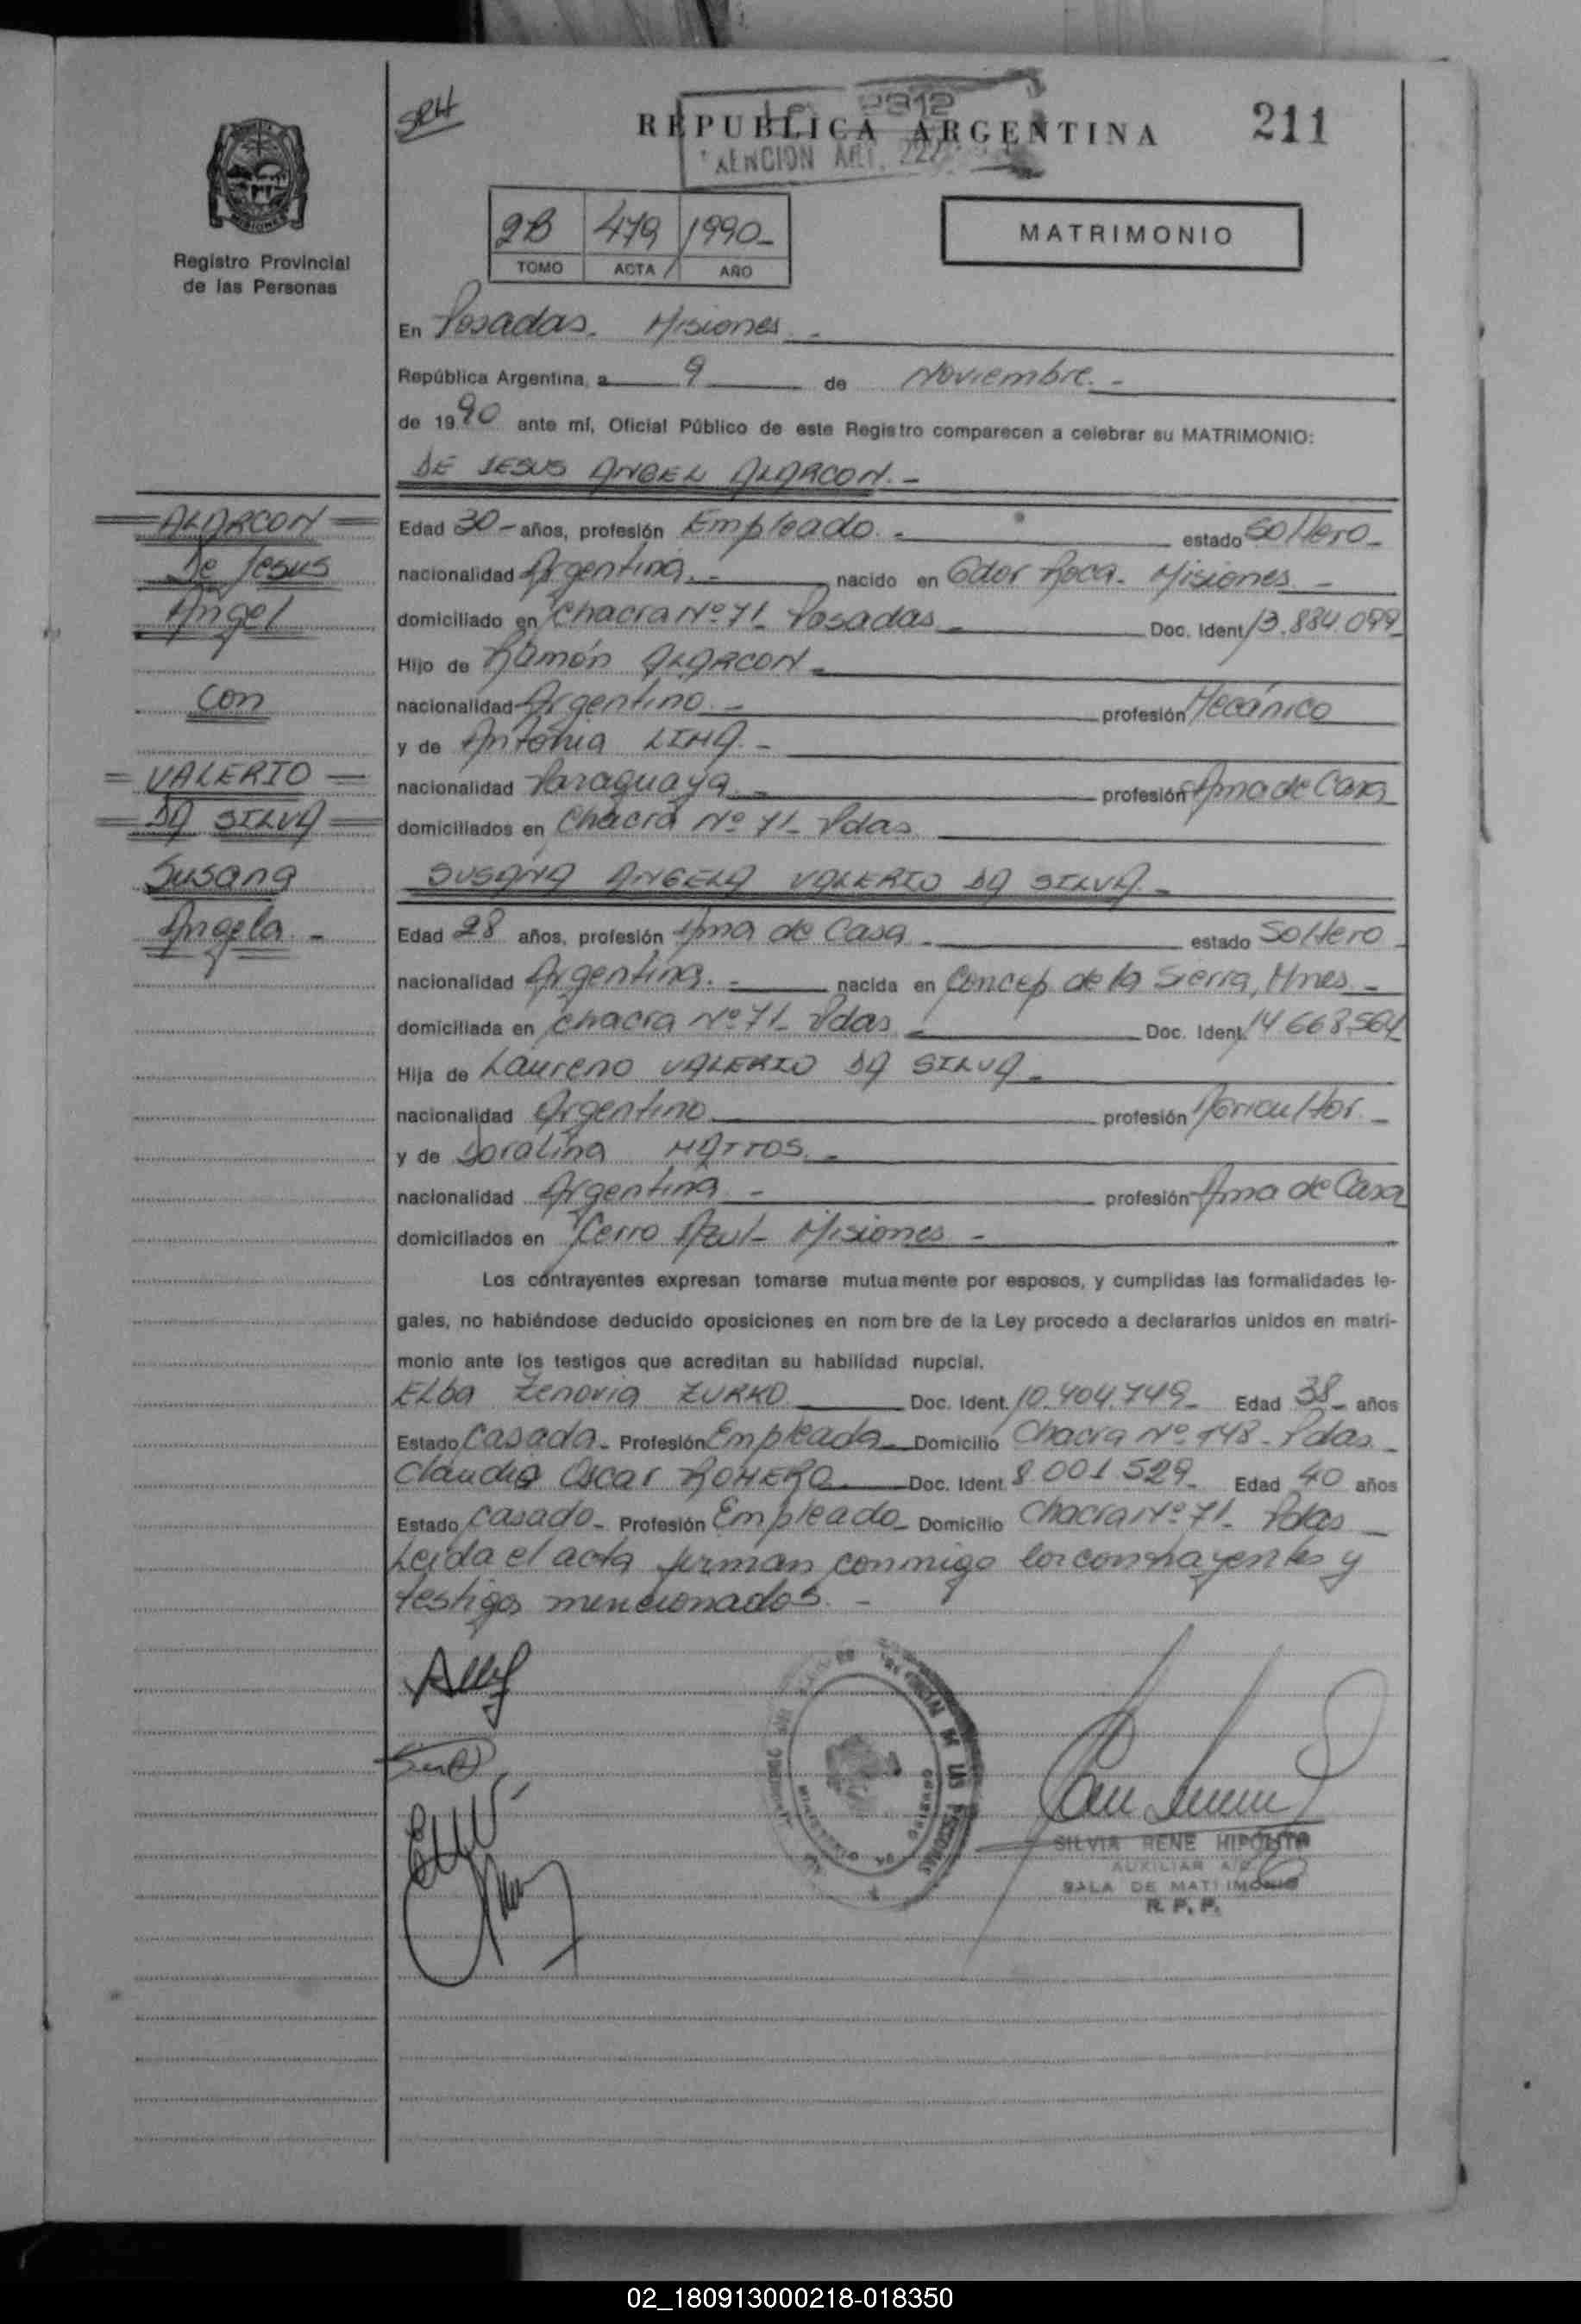 SRH
REPUBLICA ARGENTINA
211
2B 479 1990-
TOMO ACTA AÑO
MATRIMONIO
Registro Provincial
de las Personas
En Posadas. Misiones.-
República Argentina, a 9 de Noviembre.-
de 1990 ante mí, Oficial Público de este Registro comparecen a celebrar su MATRIMONIO:
DE JESUS ANGEL ALARCON.-
ALARCON
De Jesus
Angel
con
VALERIO
DA SILVA
Susana
Angela.-
Edad 30- años, profesión Empleado.- estado Soltero-
nacionalidad Argentina.- nacido en Gdor Roca. Misiones.-
domiciliado en Chacra Nº 71- Posadas- Doc. Ident 13.884.099
Hijo de Ramón ALARCON-
nacionalidad Argentino.- profesión Mecánico
y de Antonia LIMA.-
nacionalidad Paraguaya.- profesión Ama de Casa
domiciliados en Chacra Nº 71- Pdas
SUSANA ANGELA VALERIO DA SILVA.-
Edad 28 años, profesión Ama de Casa.- estado Soltero-
nacionalidad Argentina.- nacida en Concep. de la Sierra, Mnes-
domiciliada en chacra Nº 71- Pdas- Doc. Ident. 14 668.564
Hija de Laureno VALERIO DA SILVA-
nacionalidad Argentino profesión Agricultor.-
y de Doralina MATTOS.-
nacionalidad Argentina- profesión Ama de Casa
domiciliados en Cerro Azul- Misiones-
Los contrayentes expresan tomarse mutuamente por esposos, y cumplidas las formalidades le-
gales, no habiéndose deducido oposiciones en nombre de la Ley procedo a declararlos unidos en matri-
monio ante los testigos que acreditan su habilidad nupcial.
ELba Zenovia ZURKO Doc. Ident. 10.404.749- Edad 38- años
Estado Casada- Profesión Empleada- Domicilio Chacra Nº 148- Pdas-
Claudio Oscar ROMERO Doc. Ident. 8 001 529- Edad 40 años
Estado Casado- Profesión Empleado- Domicilio Chacra Nº 71- Pdas-
Leida el acta firman conmigo los contrayentes y
testigos mencionados.-
SILVIA RENE HIPÓLITO
AUXILIAR
SALA DE MATRIMONIO
R. P. P.
02_180913000218-018350